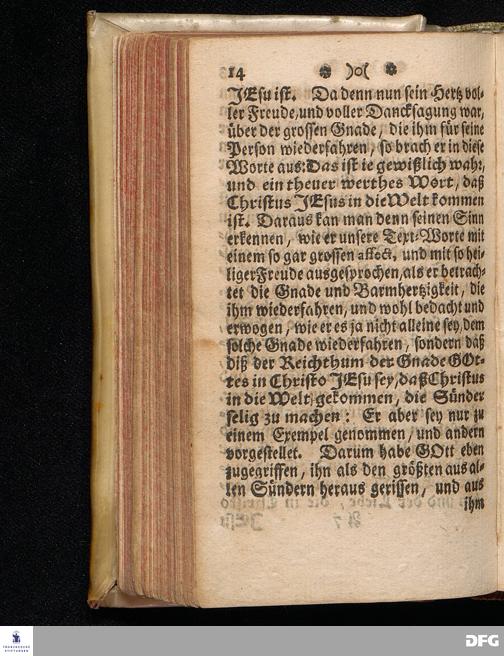 14 ❀ )o( ❀
JEsu ist. Da denn nun sein Hertz vol-
ler Freude, und voller Dancksagung war,
über der grossen Gnade, die ihm für seine
Person wiederfahren, so brach er in diese
Worte aus: Das ist ie gewißlich wahr,
und ein theuer werthes Wort, daß
Christus JEsus in die Welt kommen
ist. Daraus kan man denn seinen Sinn
erkennen, wie er unsere Text-Worte mit
einem so gar grossen affect, und mit so hei-
liger Freude ausgesprochen, als er betrach-
tet die Gnade und Barmhertzigkeit, die
ihm wiederfahren, und wohl bedacht und
erwogen, wie er es ja nicht alleine sey, dem
solche Gnade wiederfahren, sondern daß
diß der Reichthum der Gnade GOt-
tes in Christo JEsu sey, daß Christus
in die Welt gekommen, die Sünder
selig zu machen: Er aber sey nur zu
einem Exempel genommen, und andern
vorgestellet. Darum habe GOtt eben
zugegriffen, ihn als den größten aus al-
len Sündern heraus gerissen, und aus
ihm
FRANCKESCHE
STIFTUNGEN
DFG